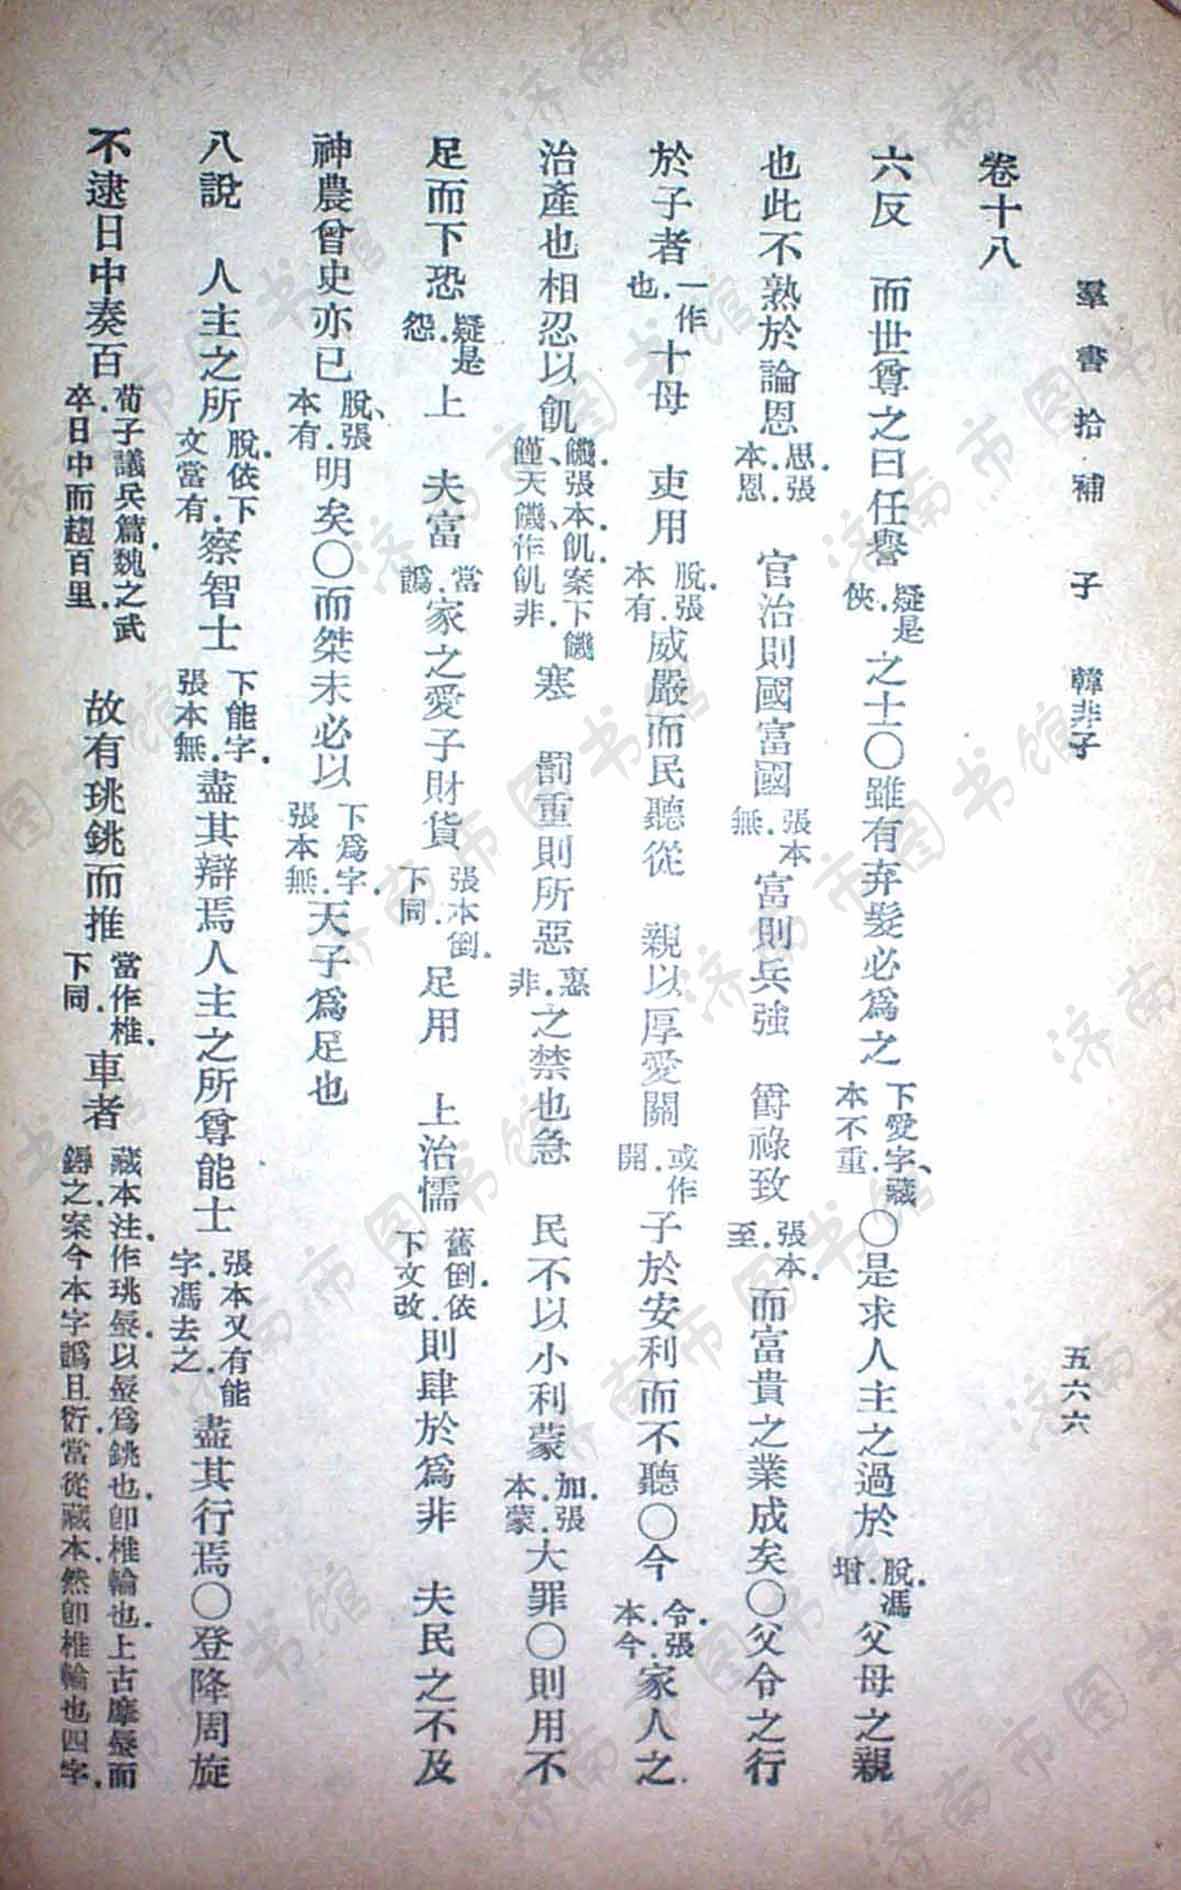 羣書拾補 子 韓非子 五六六
卷十八
六反 而世尊之曰任譽疑是俠.之士〇雖有弃髮必爲之下愛字、藏本不重.〇是求人主之過於脫.馮增.父母之親
也此不熟於論恩思.張本.恩.官治則國富國張本無.富則兵強 爵祿致張本.至.而富貴之業成矣〇父令之行
於子者一作也.十母 吏用脫.張本有.威嚴而民聽從 親以厚愛關或作開.子於安利而不聽〇今令.張本.今.家人之
治產也相忍以飢饑.張本.飢.案下饑饉、天饑、作飢非.寒 罰重則所惡惪.非.之禁也急 民不以小利蒙加.張本.蒙.大罪〇則用不
足而下恐疑是怨.上 夫富當譌.家之愛子財貨張本倒.下同.足用 上治懦舊倒.依下文改.則肆於爲非 夫民之不及
神農曾史亦已脫、張本有.明矣〇而桀未必以下爲字.張本無.天子爲足也
八說 人主之所脫.依下文當有.察智士下能字.張本無.盡其辯焉人主之所尊能士張本又有能字.馮去之.盡其行焉〇登降周旋
不逮日中奏百荀子議兵篇.魏之武卒.日中而趨百里.故有珧銚而推當作椎.下同.車者藏本注作珧蜃.以蜃爲銚也.卽椎輪也.上古摩蜃而鎒之.案今本字譌且衍.當從藏本.然卽椎輪也四字.